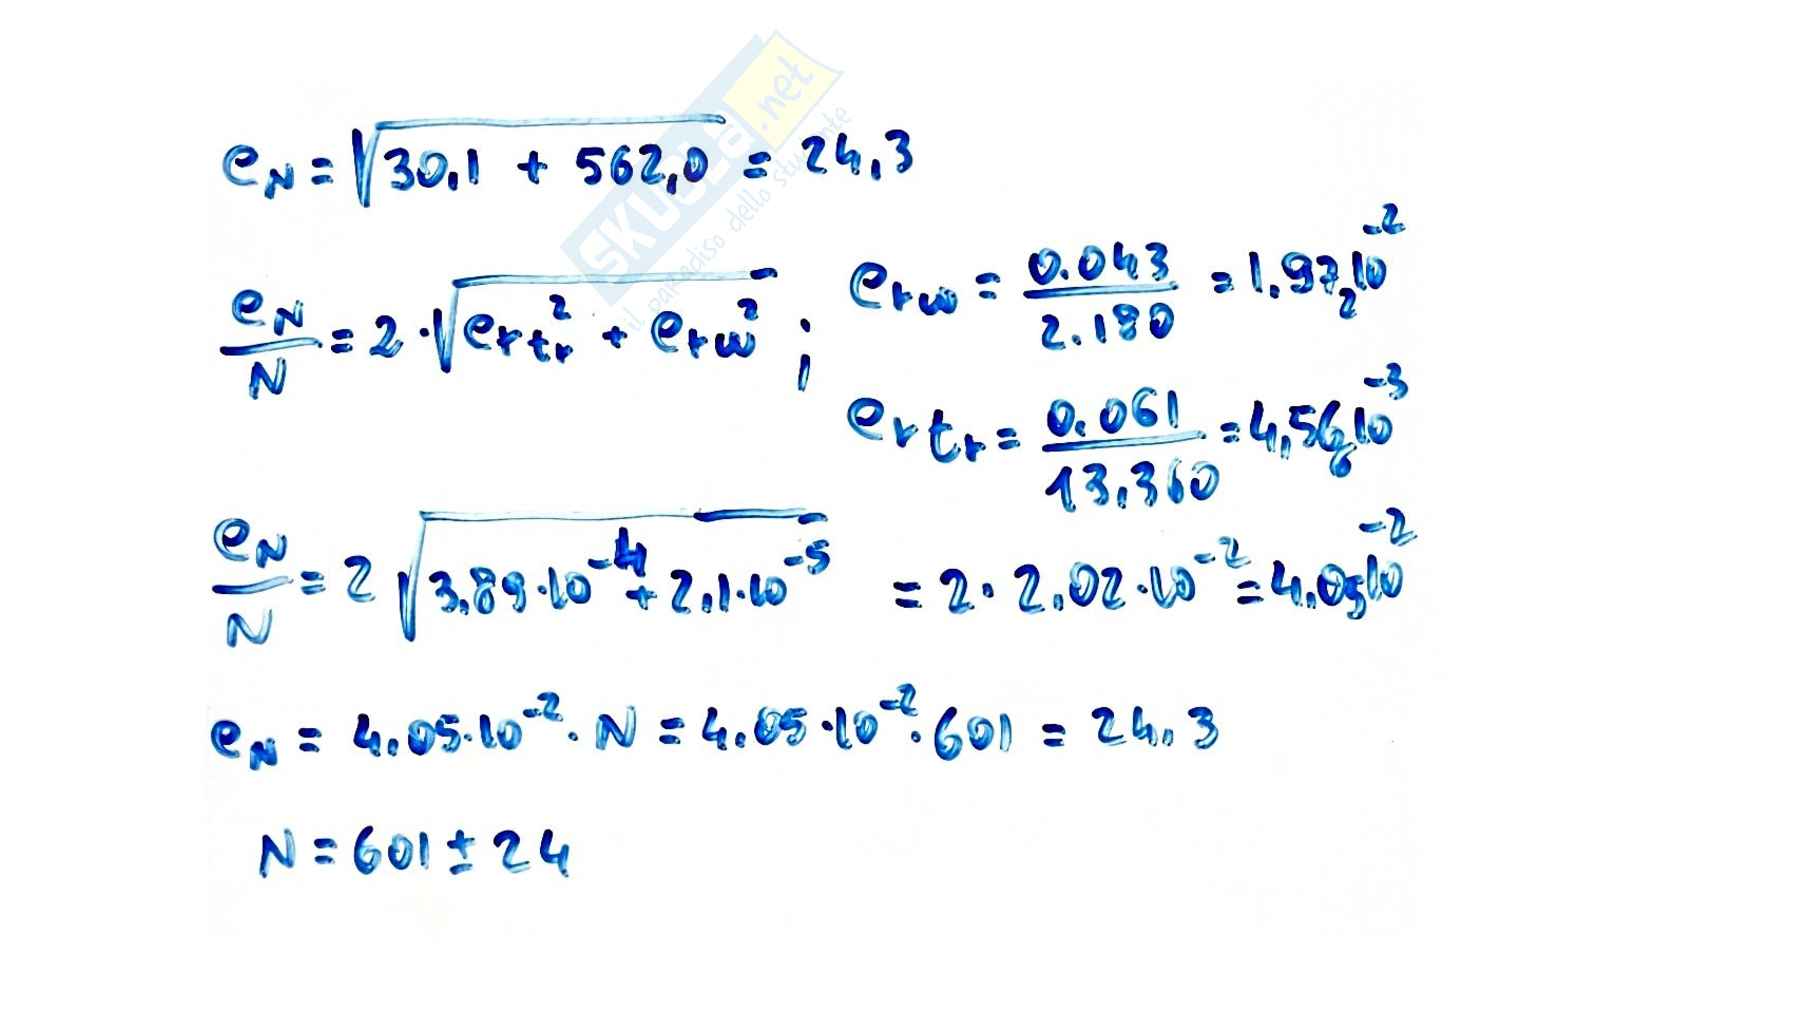 e_N = √(30,1 + 562,0) = 24,3
SKUOLA.net
il paradiso dello studente
e_N/N = 2 · √(e_rt_r² + e_rw²) ;
e_rw = 0.043/2.180 = 1.97·10⁻²
e_rt_r = 0.061/13,360 = 4,56·10⁻³
e_N/N = 2 √(3,89·10⁻⁴ + 2,1·10⁻⁵) = 2 · 2,02·10⁻² = 4,05·10⁻²
e_N = 4,05·10⁻² · N = 4,05·10⁻² · 601 = 24,3
N = 601 ± 24